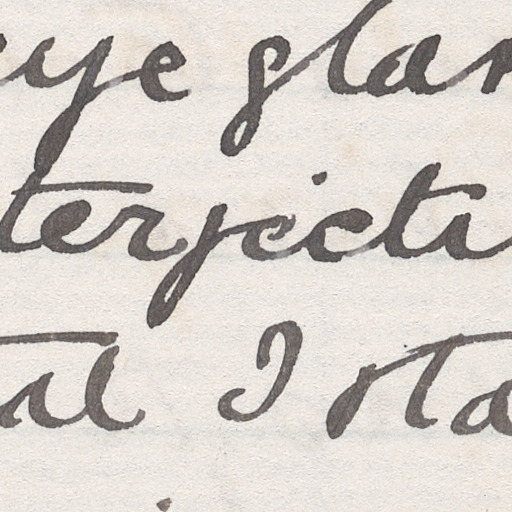 eye glan
terjecti
tal I sta